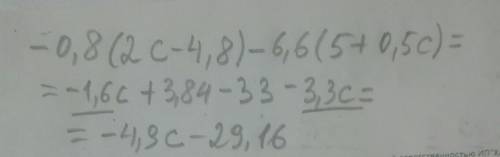 -0,8(2c-4,8)-6,6(5+0,5c)=
=-1,6c+3,84-33-3,3c=
=-4,9c-29,16